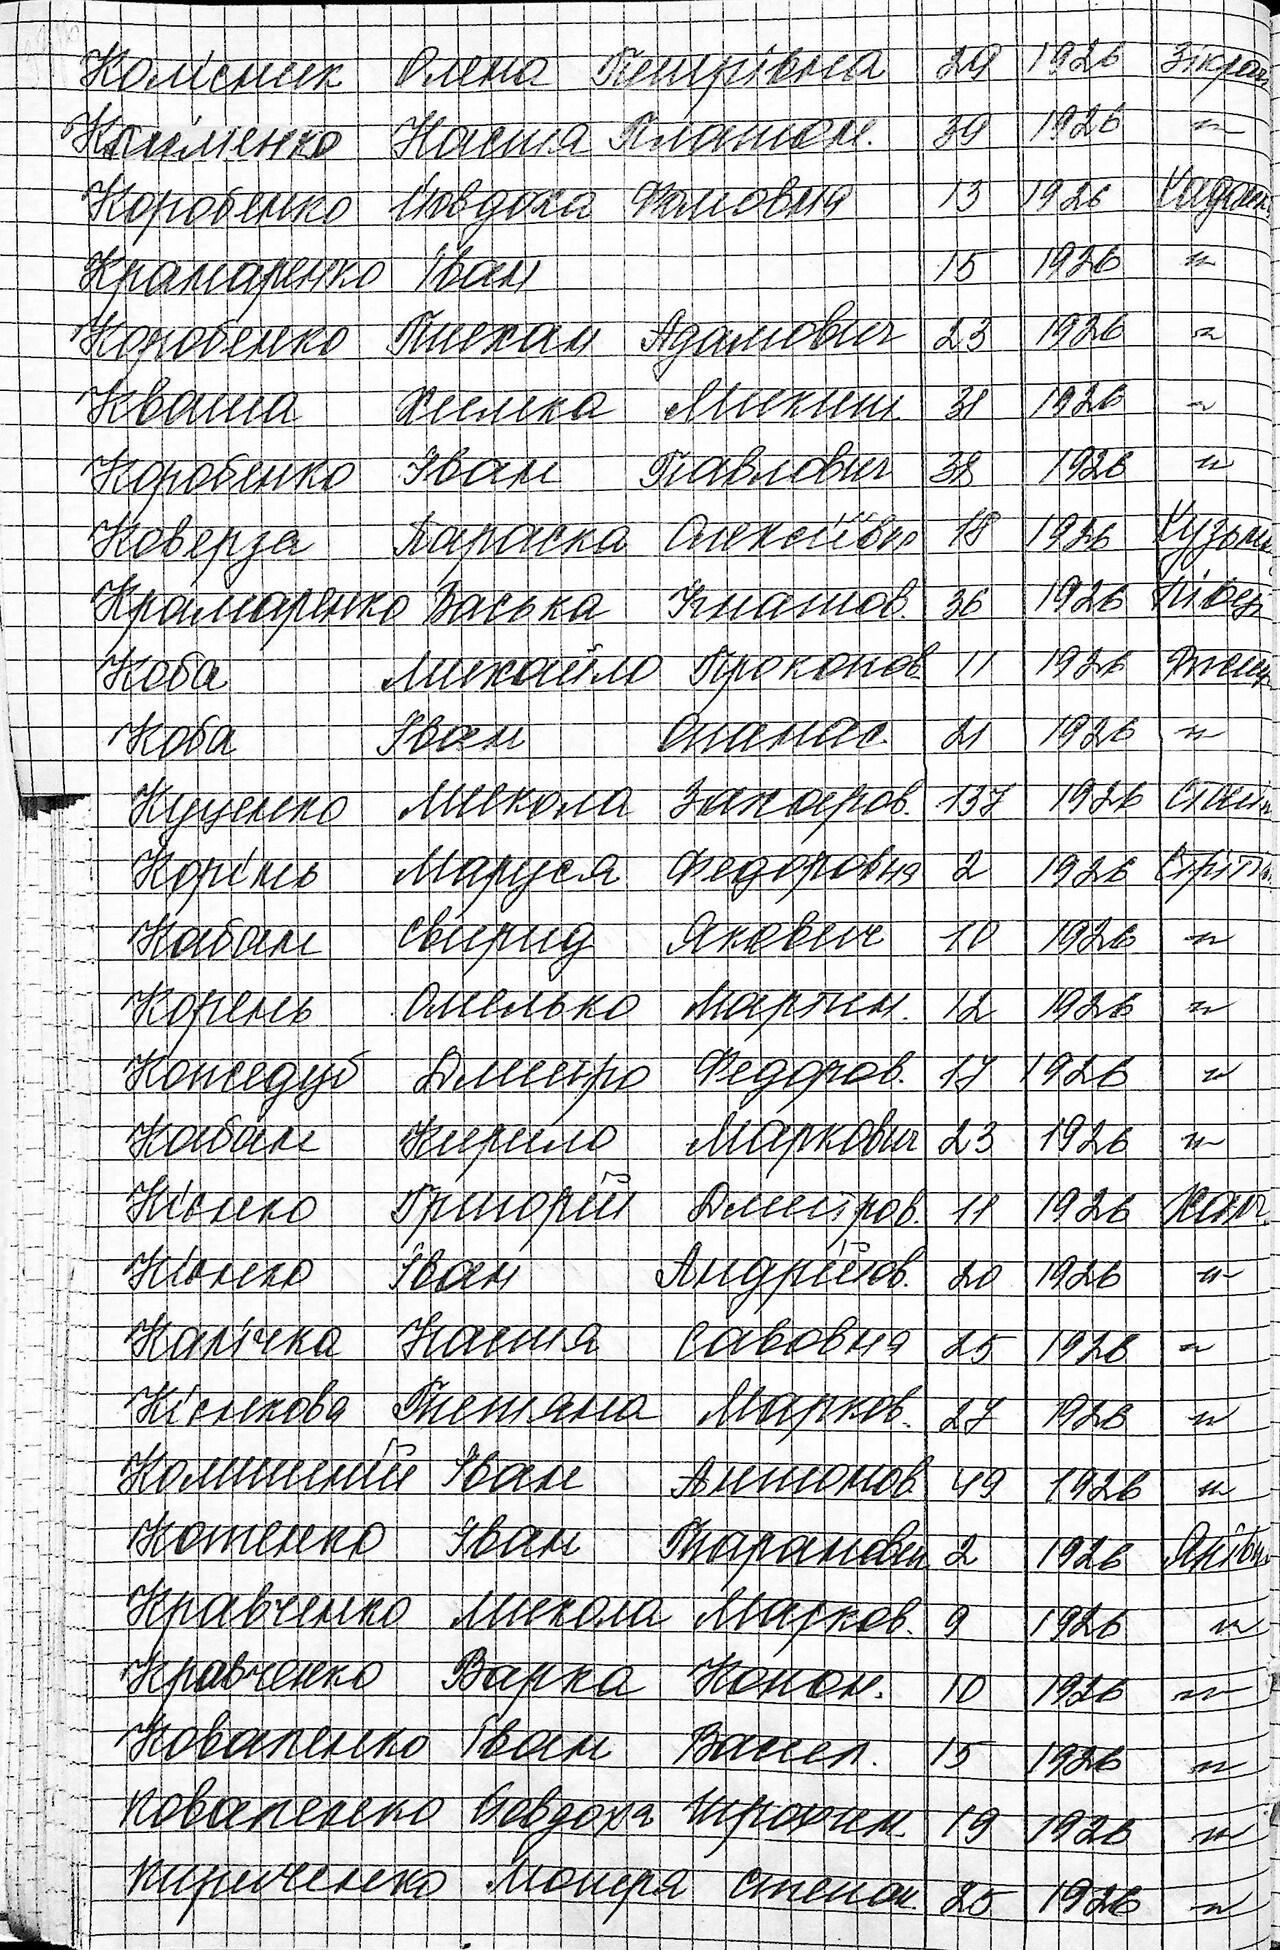 Колісник Олена Петрівна 29 1926
Клименко Настя Платон. 39 1926 -"-
Коробенко Йовдоха Фомовна 13 1926
Крамаренко Іван 15 1926 -"-
Коробенко Пилип Адамович 23 1926 -"-
Кваша Химка Микит. 31 1926 -"-
Коробенко Іван Павлович 38 1926 -"-
Коверза Параска Олексіївна 18 1926 Кузьм
Крамаренко Васька Гнатов. 36 1926
Коба Михайло Прокопов. 11 1926
Коба Іван Опанас. 21 1926 -"-
Куценко Микола Захаров. 137 1926
Корінь Маруся Федоровна 2 1926
Кабан Свирид Якович 10 1926 -"-
Корень Омелько Мартин. 12 1926 -"-
Кожедуб Дмитро Федоров. 17 1926 -"-
Кабан Кирило Маркович 23 1926 -"-
Кієнко Григорій Дмитров. 11 1926
Кієнко Іван Андрійов. 20 1926 -"-
Калічка Настя Савовна 25 1926 -"-
Тетяна Марков. 27 1926 -"-
Іван Антонов. 49 1926 -"-
Котенко Іван Тарасович 2 1926
Кравченко Микола Марков. 9 1926 -"-
Кравченко Варка Конон. 10 1926 -"-
Коваленко Іван Васил. 15 1926 -"-
Коваленко Йовдоха Трохим. 19 1926 -"-
Кириченко Мотря Степан. 25 1926 -"-